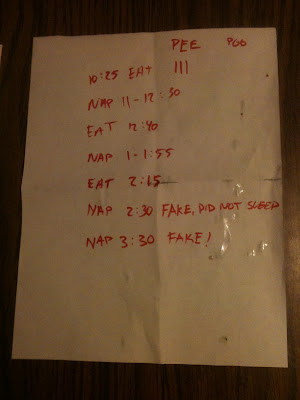 PEE POO
10:25 EAT III
NAP 11-12:30
EAT 12:40
NAP 1-1:55
EAT 2:15
NAP 2:30 FAKE, DID NOT SLEEP
NAP 3:30 FAKE!